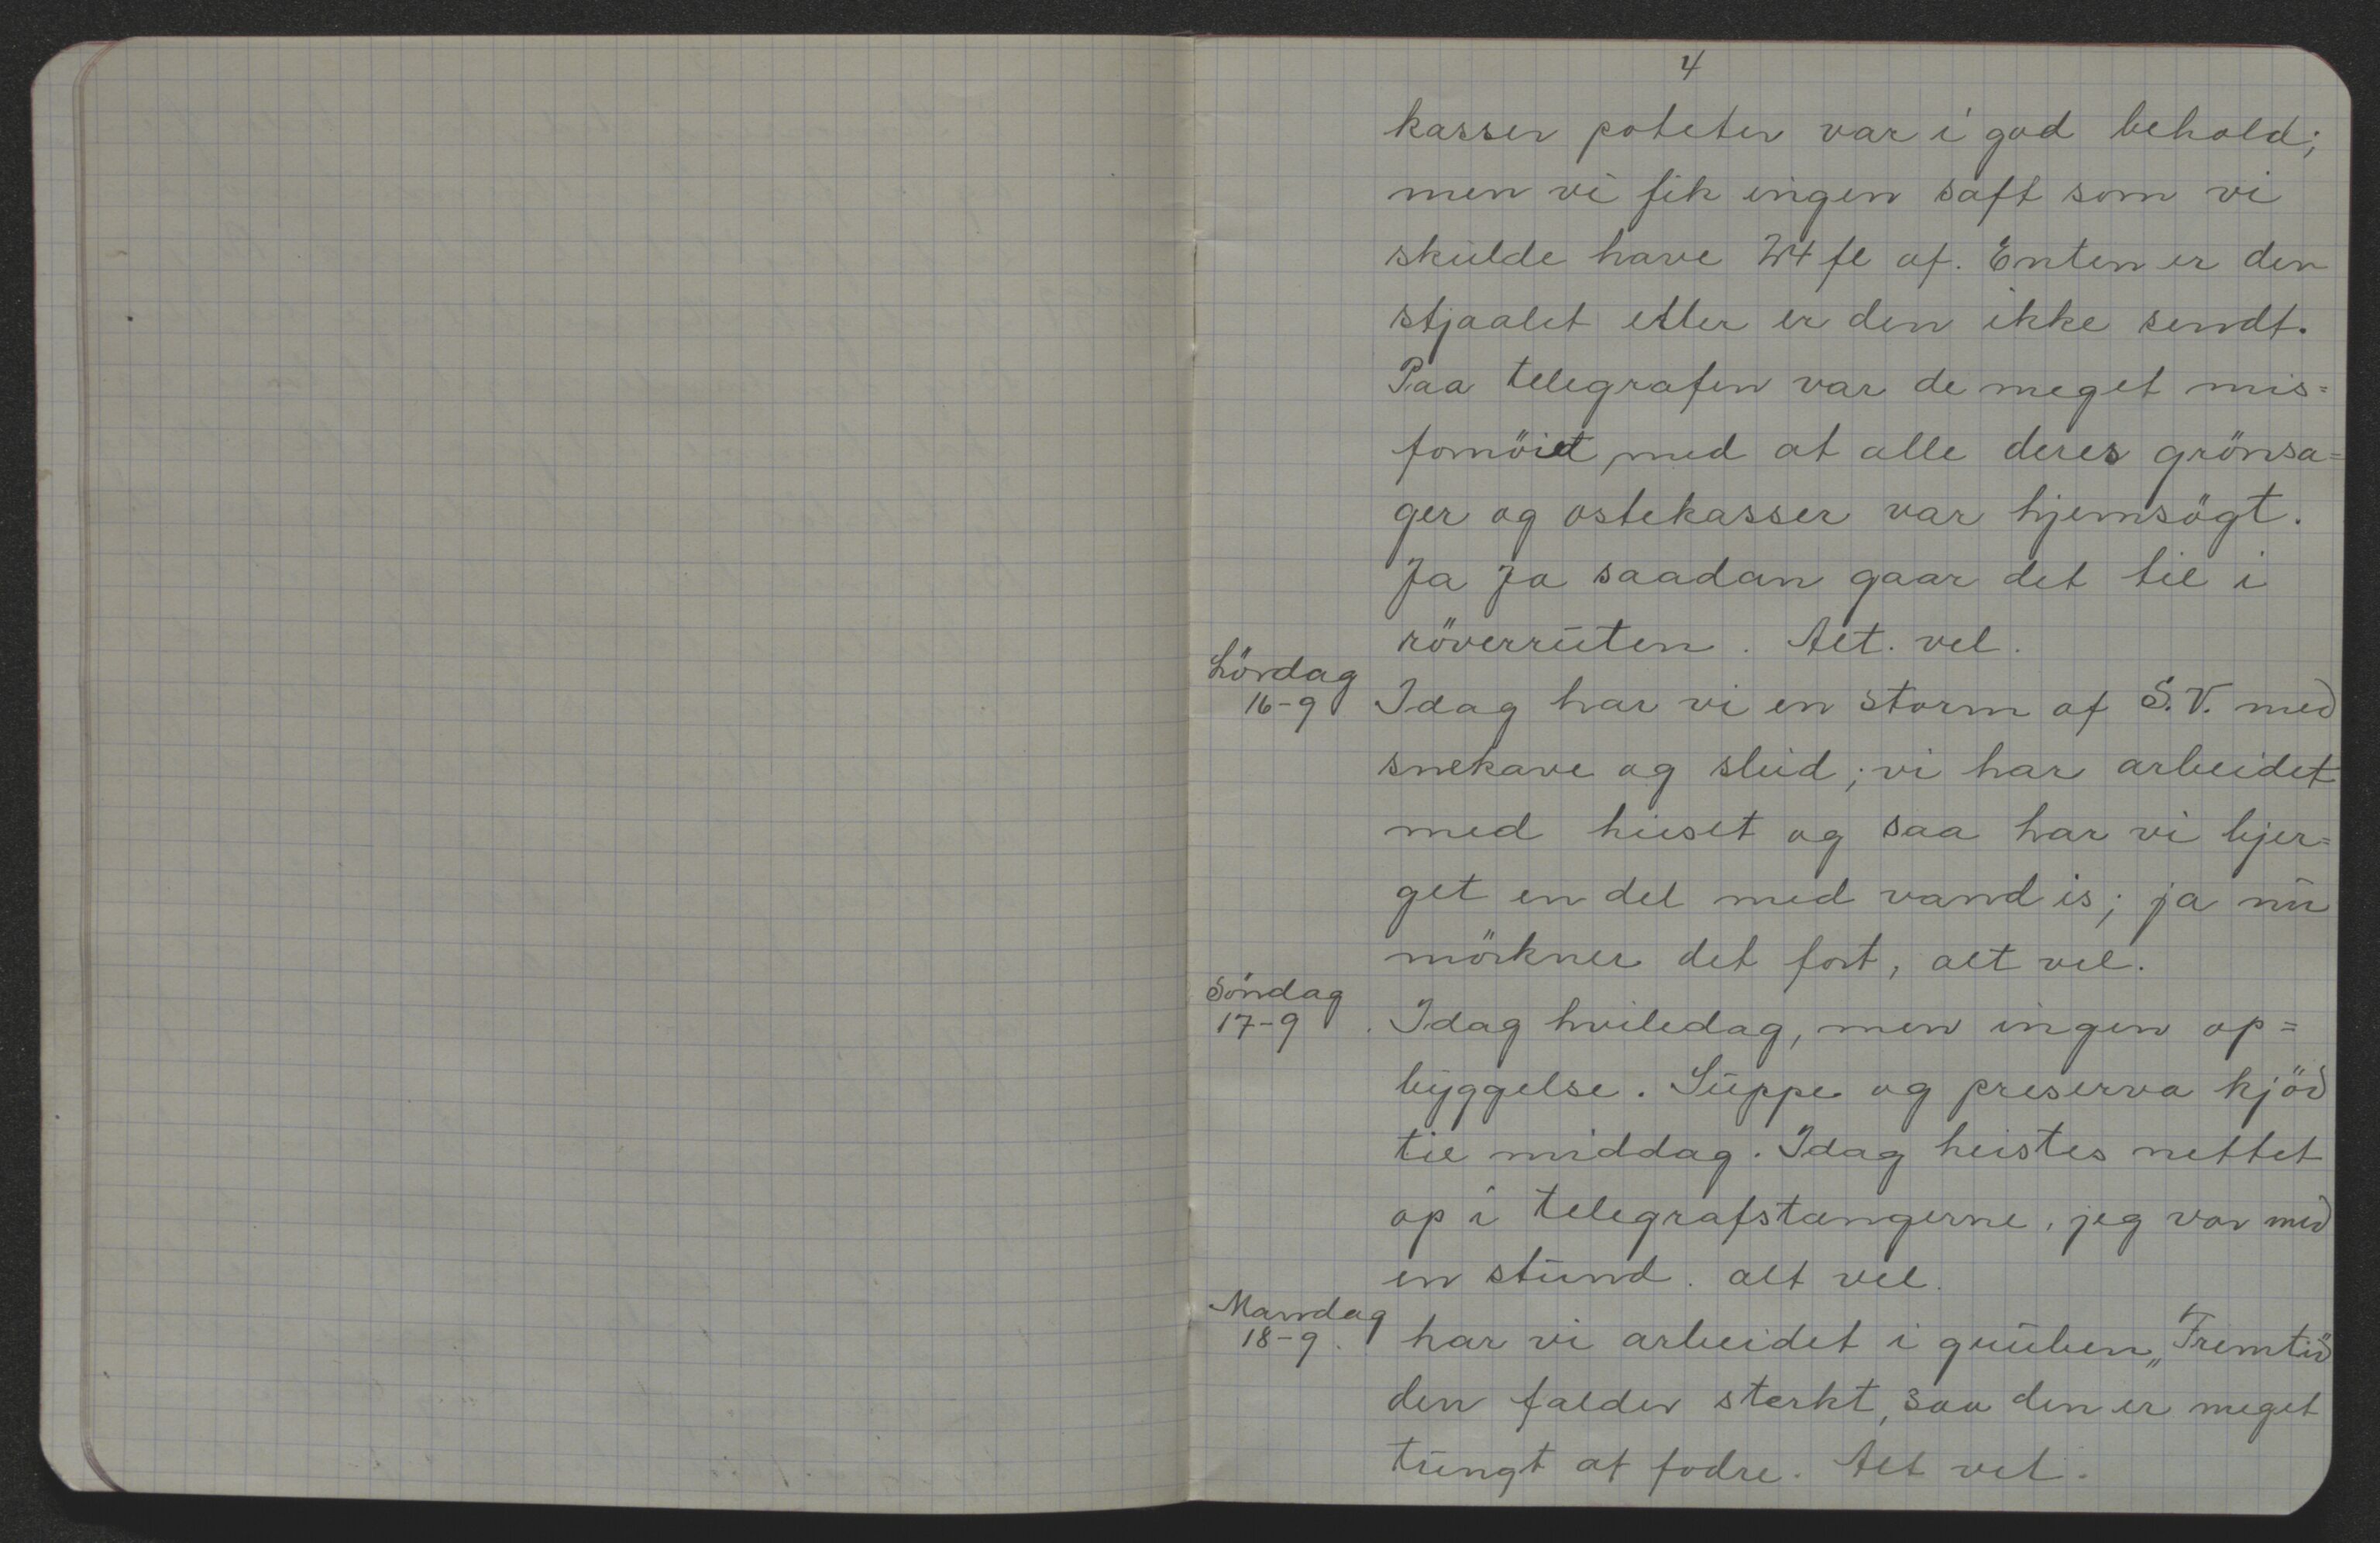 4
kasser poteter var i god behold;
men vi fik ingen saft som vi
skulde have 24 fl af. Enten er den
stjaalet eller er den ikke sendt.
Paa telegrafen var de meget mis=
fornöiet med at alle deres grönsa=
ger og ostekasser var hjemsögt.
Ja Ja saadan gaar det til i
röverruten. Alt. vel.
Lördag
16-9 Idag har vi en storm af S.V. med
snekave og slud; vi har arbeidet
med huset og saa har vi bjer=
get en del med vand is; ja nu
mörkner det fort, alt vel.
Söndag
17-9. Idag hviledag, men ingen op=
byggelse. Suppe og preserva kjöd
til middag. Idag heistes nettet
op i telegrafstængerne, jeg var med
en stund. alt vel.
Mandag
18-9. har vi arbeidet i gruben „Fremtid"
den falder sterkt, saa den er meget
tungt at fodre. Alt vel.